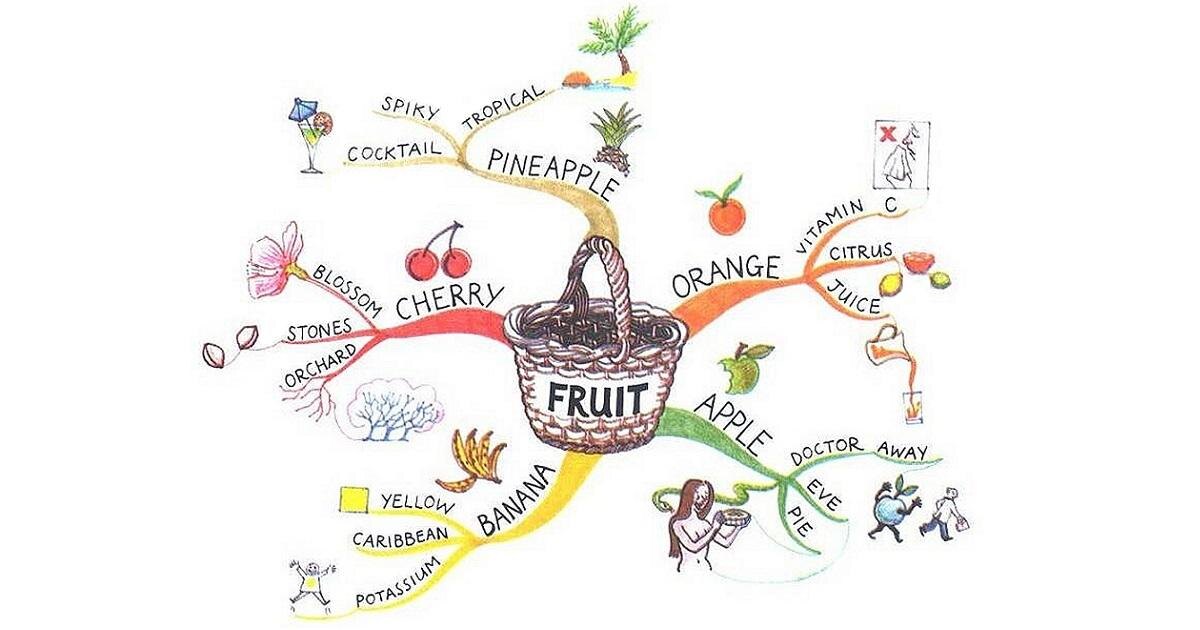 FRUIT
ORANGE
VITAMIN C
CITRUS
JUICE
APPLE
DOCTOR AWAY
EVE
PIE
BANANA
YELLOW
CARIBBEAN
POTASSIUM
CHERRY
BLOSSOM
STONES
ORCHARD
PINEAPPLE
COCKTAIL
SPIKY
TROPICAL
X